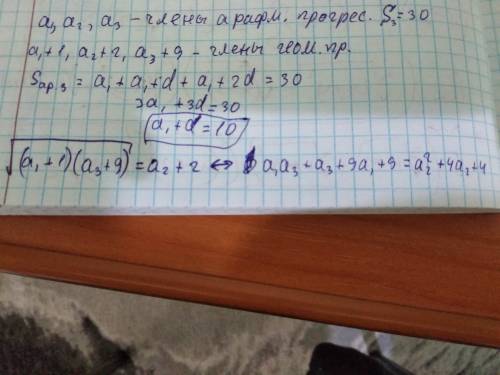 a₁ a₂, a₃ – члены арафм. прогрес. S₃=30
a₁+1, a₂+2, a₃+9 – члены геом. пр.
Sар.3 = a₁ + a₁+d + a₁ + 2d = 30
3a₁ + 3d = 30
a₁ + d = 10
√(a₁+1)(a₃+9) = a₂+2 ↔ a₁a₃+a₃+9a₁+9 = a₂²+4a₂+4